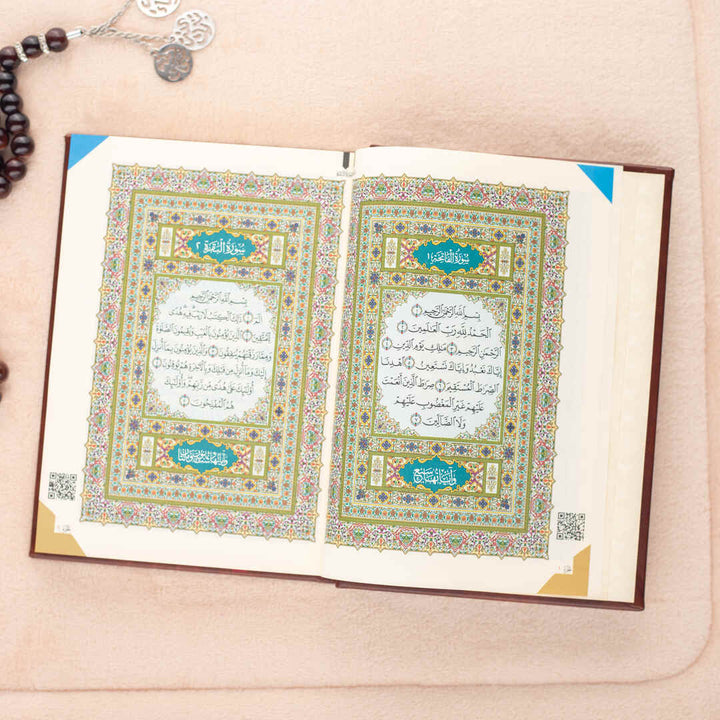 سورة الفاتحة ١
بسم الله الرحمن الرحيم ١
الحمد لله رب العالمين ٢
الرحمن الرحيم ٣ مالك يوم الدين ٤
إياك نعبد وإياك نستعين ٥ اهدنا
الصراط المستقيم ٦ صراط الذين أنعمت
عليهم غير المغضوب عليهم
ولا الضالين ٧
وآياتها سبع
سورة البقرة ٢
بسم الله الرحمن الرحيم
الم ١ ذلك الكتاب لا ريب فيه هدى
للمتقين ٢ الذين يؤمنون بالغيب ويقيمون الصلاة
ومما رزقناهم ينفقون ٣ والذين يؤمنون بما أنزل
إليك وما أنزل من قبلك وبالآخرة هم يوقنون ٤
أولئك على هدى من ربهم وأولئك
هم المفلحون ٥